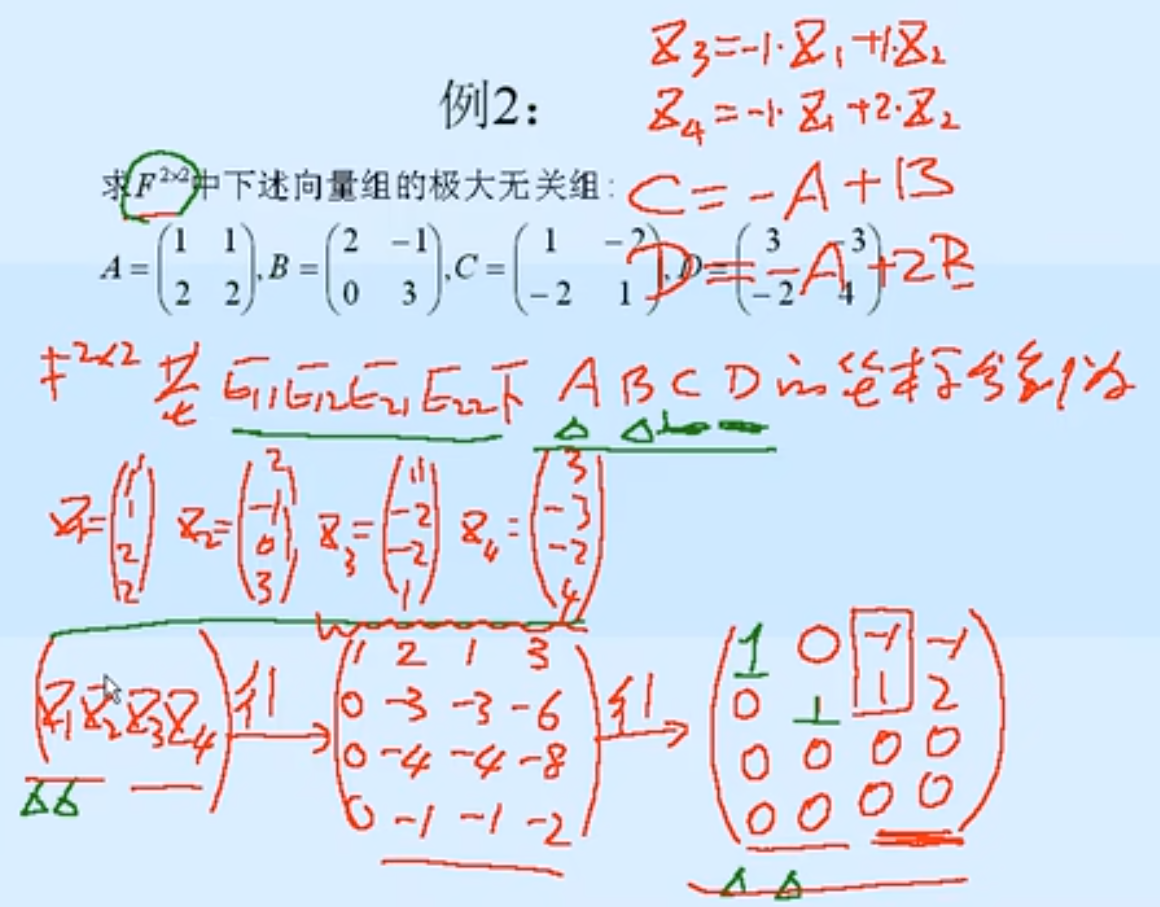 Z₃=-1·Z₁+1·Z₂
例2：
Z₄=-1·Z₁+2·Z₂
求F²ˣ²中下述向量组的极大无关组：
C=-A+B
A=(1 1; 2 2), B=(2 -1; 0 3), C=(1 -2; -2 1), D=(3 -3; -2 4)
D=-A+2B
F²ˣ² 基 E₁₁ E₁₂ E₂₁ E₂₂ 下 A B C D 的坐标分别为
Z₁=(1 1 2 2) Z₂=(2 -1 0 3) Z₃=(1 -2 -2 1) Z₄=(3 -3 -2 4)
(Z₁ Z₂ Z₃ Z₄) 行→ (1 2 1 3; 0 -3 -3 -6; 0 -4 -4 -8; 0 -1 -1 -2) 行→ (1 0 -1 -1; 0 1 1 2; 0 0 0 0; 0 0 0 0)